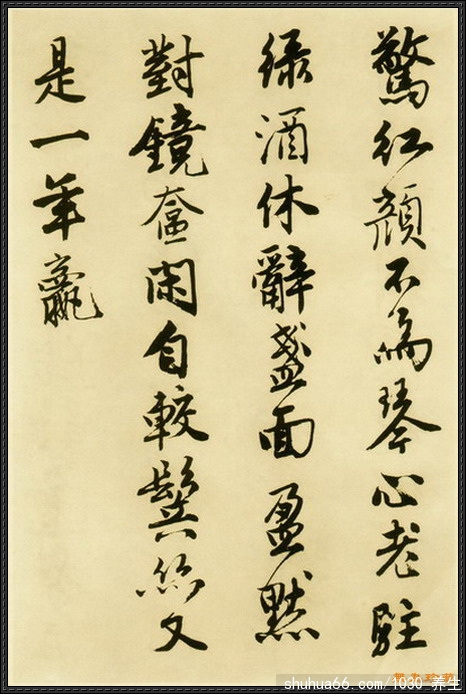 驚紅顏不琴心老駐
綠酒休辭盞面盈默
對鏡奩閑自較鬢絲又
是一年贏
shuhua66.com/1030_养生